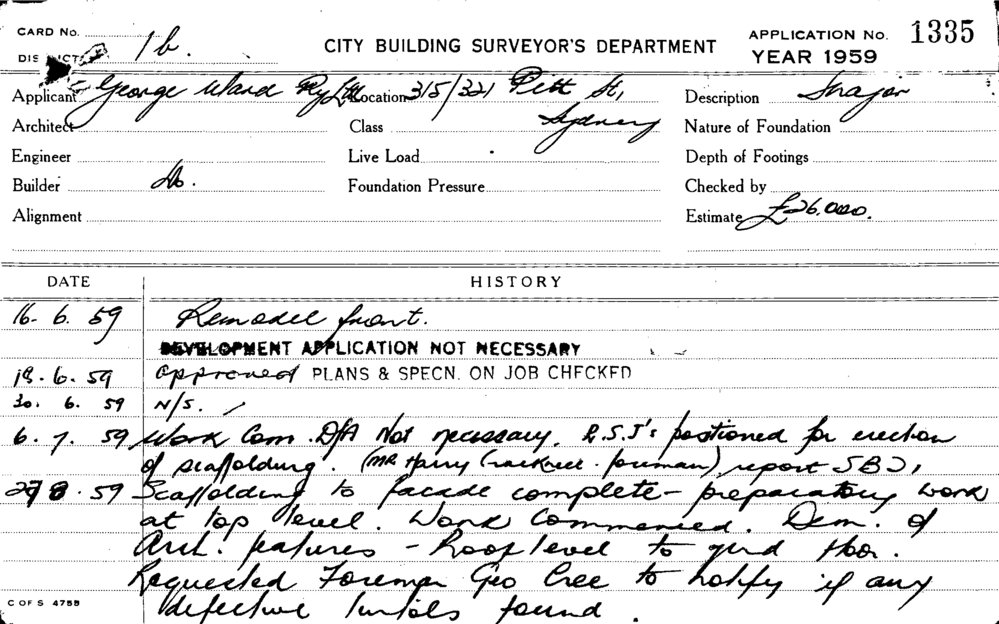 CARD No. 1b. CITY BUILDING SURVEYOR'S DEPARTMENT APPLICATION No. 1335
DISTRICT YEAR 1959
Applicant George Ward Pty Ltd Location 315/321 Pitt St, Description
Architect Class Sydney Nature of Foundation
Engineer Live Load Depth of Footings
Builder Do. Foundation Pressure Checked by
Alignment Estimate £26,000.
DATE HISTORY
16. 6. 59 Remodel front.
DEVELOPMENT APPLICATION NOT NECESSARY
18. 6. 59 approved PLANS & SPECN. ON JOB CHECKED
30. 6. 59 N/S.
6. 7. 59 Work Com. D/A Not necessary. R.S.J's postioned for erection
of scaffolding. (MR Harry foreman) report
8. 59 Scaffolding to facade complete - preparatory work
at top level. Work Commenced. Dem. of
Arch. features - Roof level to grnd floor.
Requested Foreman Geo Cree to notify if any
defective lintols found.
C OF S 4758